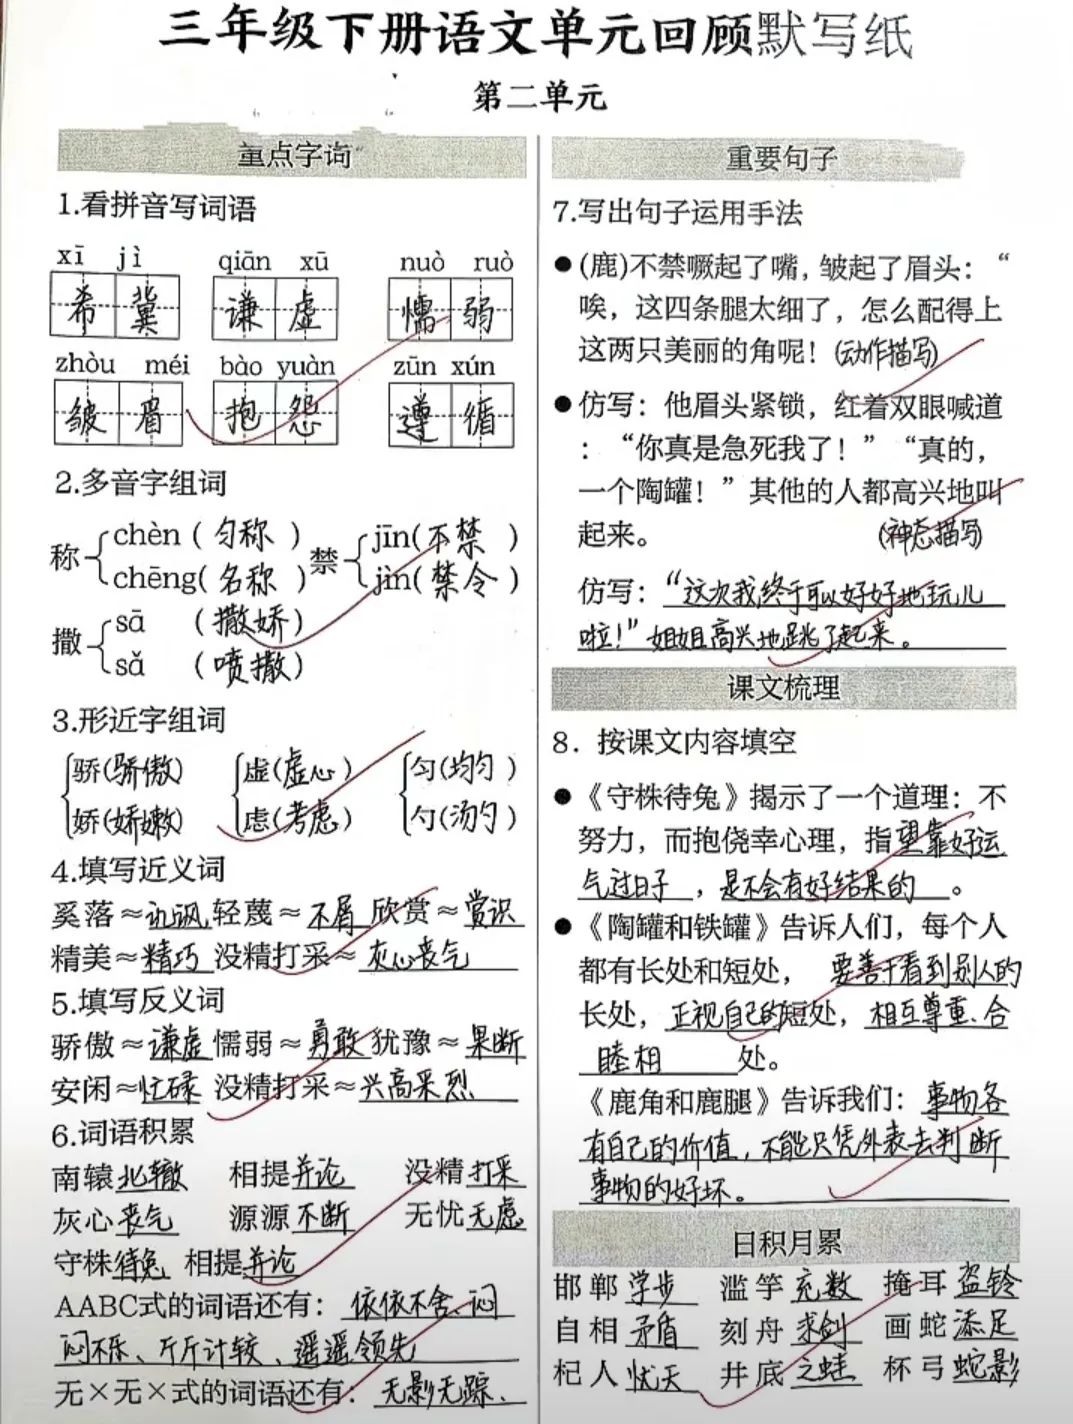 三年级下册语文单元回顾默写纸
第二单元
重点字词
1.看拼音写词语
xī jì qiān xū nuò ruò
希冀 谦虚 懦弱
zhòu méi bào yuàn zūn xún
皱眉 抱怨 遵循
2.多音字组词
称 chèn (匀称) 禁 jīn(不禁)
chēng(名称) jìn(禁令)
撒 sā (撒娇)
sǎ (喷撒)
3.形近字组词
骄(骄傲) 虚(虚心) 匀(均匀)
娇(娇嫩) 虑(考虑) 勺(汤勺)
4.填写近义词
奚落≈讥讽 轻蔑≈不屑 欣赏≈赏识
精美≈精巧 没精打采≈灰心丧气
5.填写反义词
骄傲≈谦虚 懦弱≈勇敢 犹豫≈果断
安闲≈忙碌 没精打采≈兴高采烈
6.词语积累
南辕北辙 相提并论 没精打采
灰心丧气 源源不断 无忧无虑
守株待兔 相提并论
AABC式的词语还有：依依不舍、闷
闷不乐、斤斤计较、遥遥领先
无×无×式的词语还有：无影无踪、
重要句子
7.写出句子运用手法
●(鹿)不禁噘起了嘴，皱起了眉头：“
唉，这四条腿太细了，怎么配得上
这两只美丽的角呢！(动作描写)
●仿写：他眉头紧锁，红着双眼喊道
：“你真是急死我了！”“真的，
一个陶罐！”其他的人都高兴地叫
起来。 (神态描写)
仿写：“这次我终于可以好好地玩儿
啦！”姐姐高兴地跳了起来。
课文梳理
8．按课文内容填空
●《守株待兔》揭示了一个道理：不
努力，而抱侥幸心理，指望靠好运
气过日子，是不会有好结果的。
●《陶罐和铁罐》告诉人们，每个人
都有长处和短处，要善于看到别人的
长处，正视自己的短处，相互尊重、合
睦相处。
《鹿角和鹿腿》告诉我们：事物各
有自己的价值，不能只凭外表去判断
事物的好坏。
日积月累
邯郸学步 滥竽充数 掩耳盗铃
自相矛盾 刻舟求剑 画蛇添足
杞人忧天 井底之蛙 杯弓蛇影